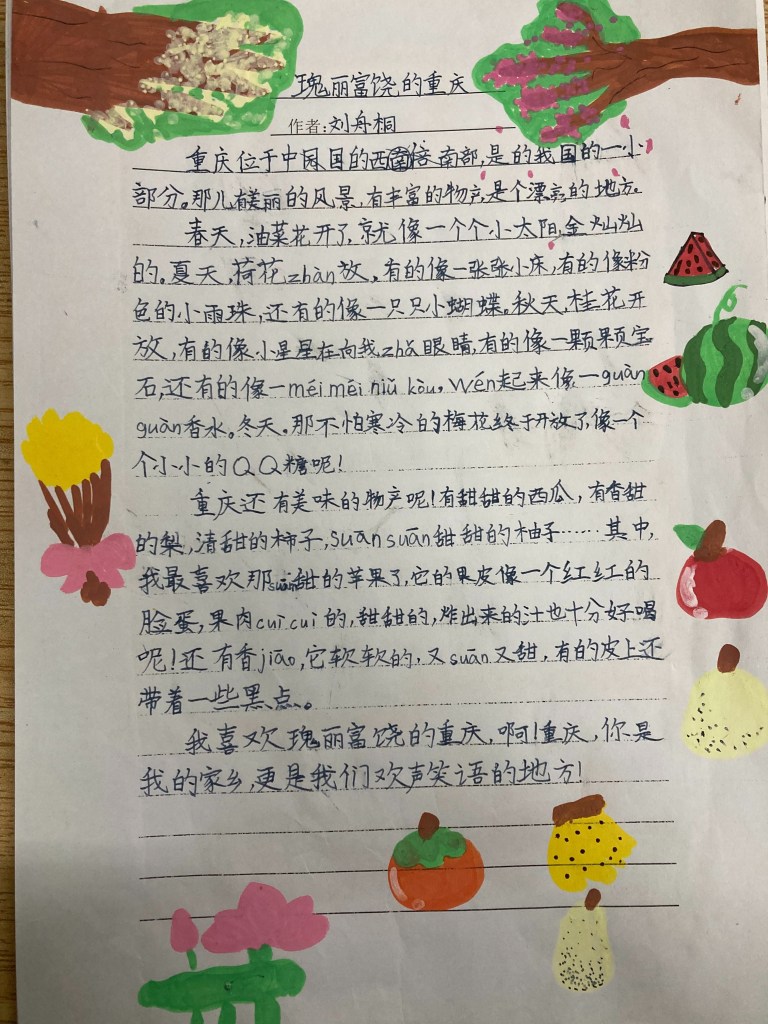 瑰丽富饶的重庆
作者:刘舟桐
重庆位于中园国的西南部,是的我国的一小
部分。那儿有美丽的风景,有丰富的物产,是个漂亮的地方。
春天,油菜花开了,就像一个个小太阳,金灿灿
的。夏天,荷花zhàn放。有的像一张张小床,有的像粉
色的小雨珠,还有的像一只只小蝴蝶。秋天,桂花开
放,有的像小星星在向我zhǎ眼睛,有的像一颗颗宝
石,还有的像一méi méi niǔ kòu。Wén起来像一guàn
guàn香水。冬天。那不怕寒冷的梅花终于开放了,像一个
个小小的QQ糖呢!
重庆还有美味的物产呢!有甜甜的西瓜,有香甜
的梨,清甜的柿子,suān suān甜甜的柚子……其中,
我最喜欢那甜的苹果了,它的果皮像一个红红的
脸蛋,果肉cuì cuì的,甜甜的,炸出来的汁也十分好喝
呢!还有香jiāo,它软软的,又suān又甜,有的皮上还
带着一些黑点、。
我喜欢瑰丽富饶的重庆,啊!重庆,你是
我的家乡,更是我们欢声笑语的地方!